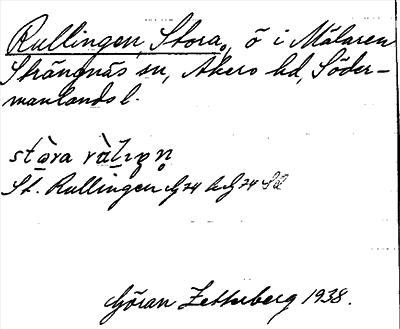 Rullingen, Stora, ö i Mälaren
Strängnäs sn, Åkers hd, Söder-
manlands l.
stora
St. Rullingen
Göran Zetterberg 1938.